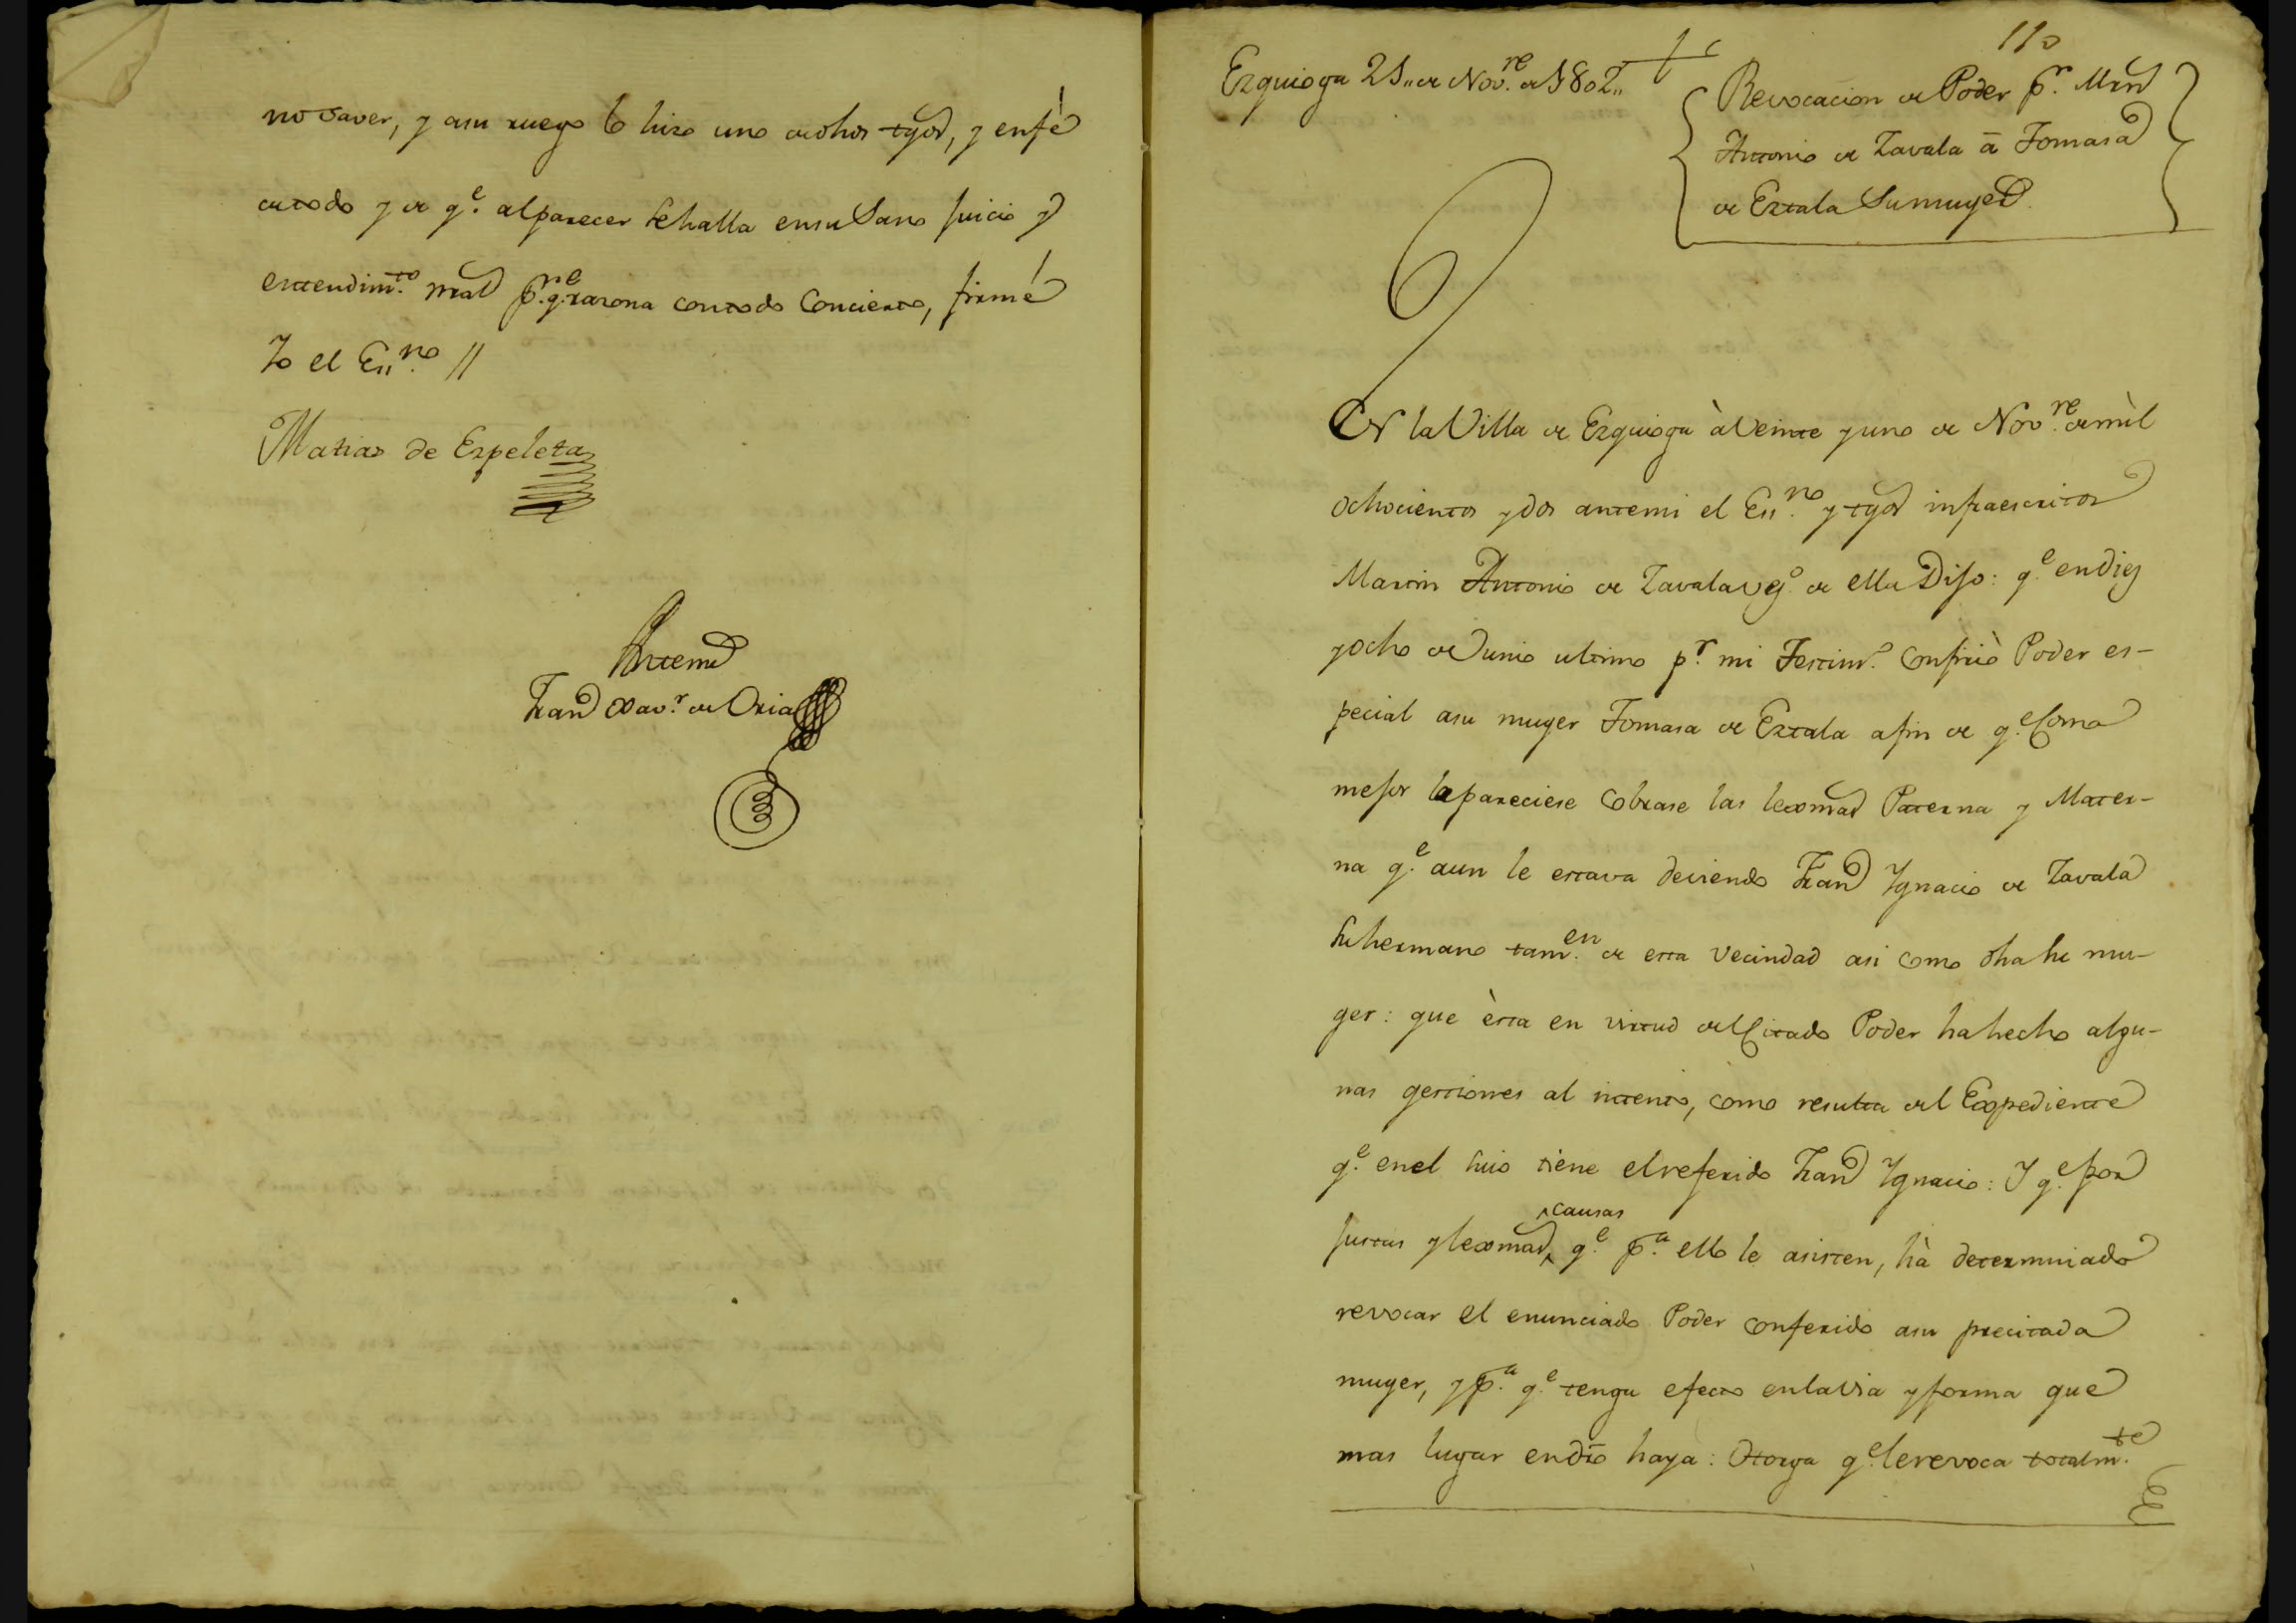 no saver, y asu ruego lo hizo uno de dhos tgos, y enfè
detodo y de q.e alparecer sehalla ensu Sano Juicio y
entendim.to nral p.r q.e razona contodo Concierto, firmé
Yo el Ess.no //
Matias de Ezpeleta
Antemi
Fran.co Xav.r de Oria
110
Ezquioga 21,, de Nov.re de 1802,,
Revocacion de Poder p.r Mrn
Antonio de Zavala ã Tomasa
de Eztala Sumuger
En la Villa de Ezquioga à Veinte yuno de Nov.re demìl
ochocientos ydos antemi el Ess.no y tgos infraescritos
Martin Antonio de Zavala vez.o de ella Dijo: q.e endiez
yocho de Junio ultimo p.r mi Testim.o Confiriò Poder es-
pecial asu muger Tomasa de Eztala afin de q.e Como
mejor lepareciese Cobrase las lexmas Paterna y Mater-
na q.e aun le estava deviendo Fran.co Ygnacio de Zavala
su hermano tam.en de esta Vecindad asi como dha su mu-
ger: que èsta en virtud delCitado Poder ha hecho algu-
nas gestiones al intento, como resulta del Expediente
q.e enel suio tiene elreferido Fran.co Ygnacio: Y q.e por
^causas
Justas ylexmas^ q.e p.a ello le asisten, hà determinado
revocar el enunciado Poder conferido asu precitada
muger, yp.a q.e tenga efecto enlavia yforma que
mas lugar endro haya: Otorga q.e lerevoca totalm.te